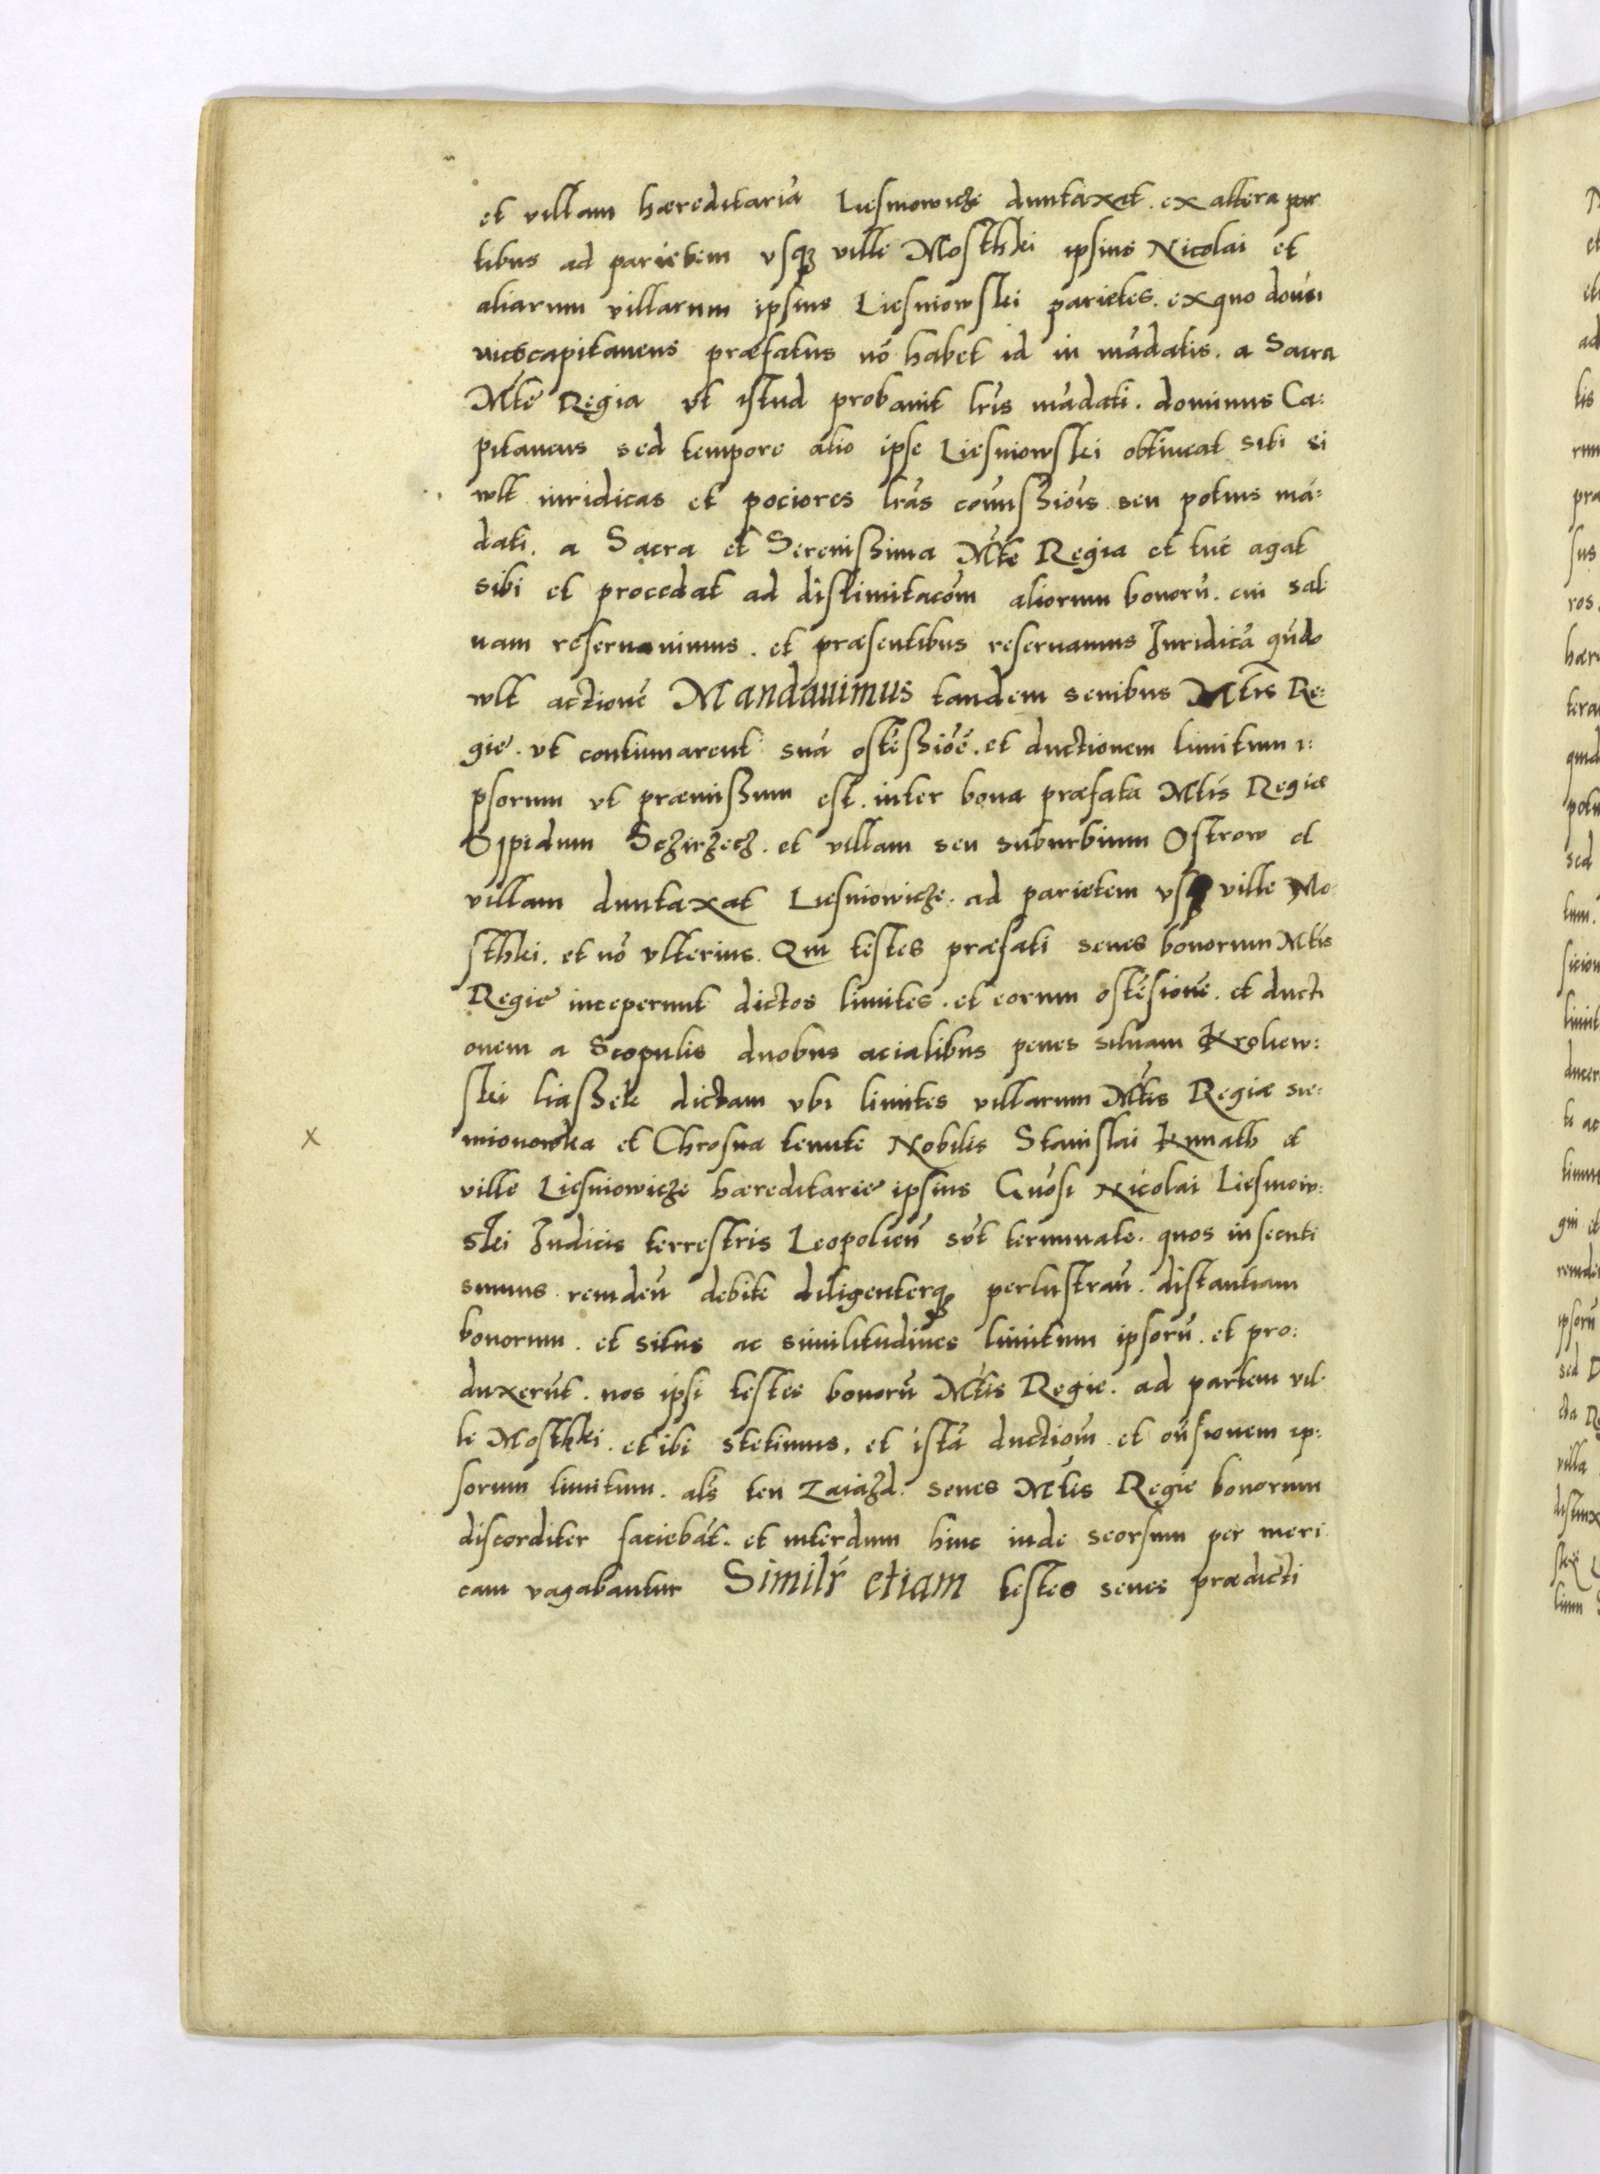 et villam hæreditariā Liesniowicze duntaxat. ex altera par
tibus ad parietem vsq3 ville Mosthki ipsius Nicolai et
aliarum villarum ipsius Liesniowski parietes. ex quo domī
vicecapitaneus præfatus nō habet id in mādatis. a Sacra
Mte Regia vt istud probavit lrīs mādati. dominus Ca:
pitaneus sed tempore alio ipse Liesniowski obtineat sibi si
wlt iuridicas et pociores lrās comīsziōis seu potius mā:
dati. a Sacra et Sereniszima Mte Regia et tūc agat
sibi et procedat ad dislimitacōm aliorum bonorū. cui sal
uam reseruauimus. et præsentibus reseruamus Juridicā qūdo
wlt actionē Mandauimus tandem senibus Mtis Re:
gie. vt continuarent suā ostēsziōē. et ductionem limitum i:
psorum vt præmiszum est. inter bona præfata Mtis Regiæ
Oppidum Sczirzecz. et villam seu suburbium Ostrow et
villam duntaxat Liesniowicze. ad parietem vsq3 ville Mo:
sthki. et nō vlterius. Qui testes præfati senes bonorum Mtis
Regie inceperunt dictos limites. et eorum ostēsionē. et ducti
onem a Scopulis duobus acialibus penes siluam Kroliew:
ski liaszek dictam vbi limites villarum Mtis Regiæ sie:
mionowka et Chrosna tenute Nobilis Stanislai Kmath et
ville Liesniowicze hæreditarie ipsius Gnōsi Nicolai Liesniow:
ski Judicis terrestris Leopolieñ sūt terminate. quos insecuti
sumus remdeñ debite diligenterq3 perlustrañ. distantiam
bonorum. et situs ac similitudines limitum ipsorū. et pro:
duxerūt. nos ipsi testes bonorū Mtis Regie. ad partem vil
le Mosthki. et ibi stetimus. et istā ductiōm et oñsionem ip:
sorum limitum. als ten Zaiazd. senes Mtis Regie bonorum
discorditer faciebāt. et interdum hinc inde seorsum per meri
cam vagabantur Similr etiam testes senes prædicti
x